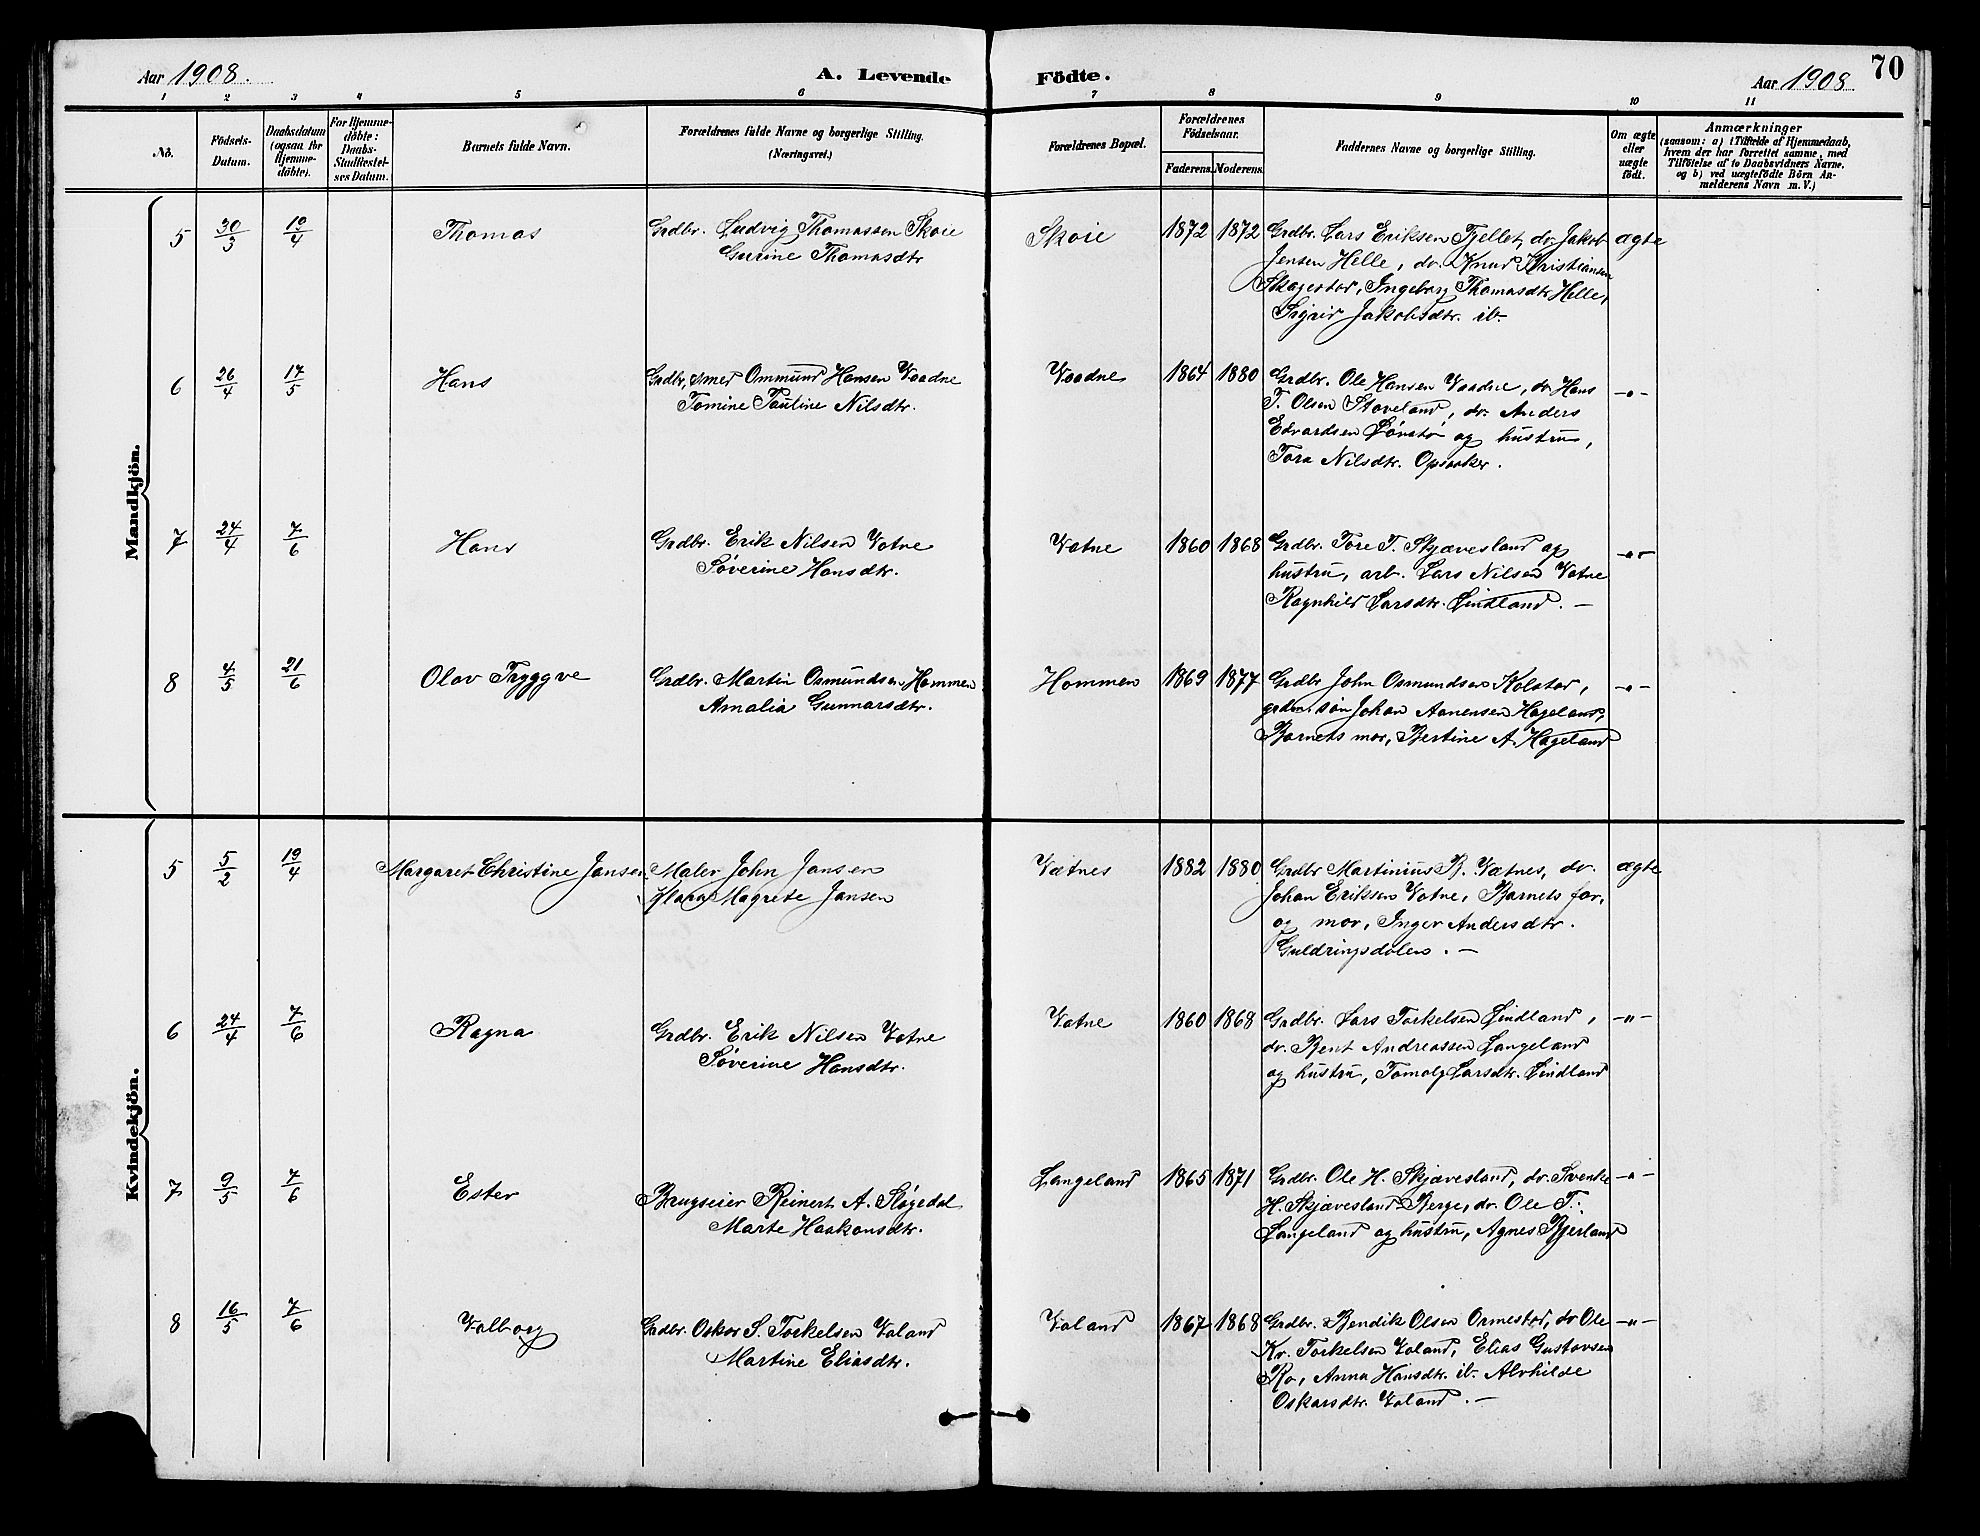 Aar 1908. A. Levende Födte. Aar 1908 70
1 2 3 4 5 6 7 8 9 10 11
No. Födsels-Datum. Daabsdatum (ogsaa for Hjemmedöbte). For Hjemmedöbte: Daabs-Stadfæstelses Datum. Barnets fulde Navn. Forældrenes fulde Navne og borgerlige Stilling. (Næringsvei.) Forældrenes Bopæl. Forældrenes Födselsaar. Faderens. Moderens. Faddernes Navne og borgerlige Stilling. Om ægte eller uægte født. Anmærkninger (saasom: a) i Tilfælde af Hjemmedaab, hvem der har forrettet samme, med Tilföielse af to Daabsvidners Navne, og b) ved uægtefødte Börn Anmelderens Navn m. V.)
Mandkjön.
5 30/3 19/4 Thomas Grdbr. Ludvig Thomassen Skoie Skoie 1872 1872 Grdbr. Lars Eriksen Fjellet, do. Jakob ægte
Gurine Thomasdtr Jensen Helle, do. Knud Kristiansen
Skagestad, Ingeborg Thomasdtr. Helle,
Sigrid Jakobsdtr. ib.
6 26/4 17/5 Hans Grdbr, smed Ommund Hansen Vaadne Vaadne 1864 1880 Grdbr. Ole Hansen Vaadne, do. Hans -"-
Tomine Pauline Nilsdtr. T. Olsen Staveland, do. Anders
Edvardsen og hustru,
Tora Nilsdtr. Opsaker.
7 24/4 7/6 Hans Grdbr. Erik Nilsen Vatne Vatne 1860 1868 Grdbr. Tore T. Skjævesland og -"-
Søverine Hansdtr. hustru, arb. Lars Nilsen Vatne
Ragnhild Larsdtr. Lindland. -
8 4/5 21/6 Olav Tryggve Grdbr. Martin Osmundsen Hommen Hommen 1869 1877 Grdbr John Osmundsen Kolstad, -"-
Amalia Gunnarsdtr. grdm.søn Johan Aanensen Hageland,
Barnets mor, Bertine A. Hageland
Kvindekjön.
5 5/2 19/4 Margaret Christine Jansen Maler John Jansen Vætnes 1882 1880 Grdbr Martinius B. Vætnes, do. ægte
Klara Magrete Jansen Johan Eriksen Vatne, Barnets far,
og mor, Inger Andersdtr.
Guldringsdalen. -
6 24/4 7/6 Ragna Grdbr. Erik Nilsen Vatne Vatne 1860 1868 Grdbr. Lars Torkelsen Lindland, -"-
Søverine Hansdtr. do. Bent Andreassen Langeland
og hustru, Larsdtr. Lindland
7 9/5 7/6 Ester Brugseier Reinert A. Støgedal Langeland 1865 1871 Grdbr. Ole H. Skjævesland, do. Svenke -"-
Marte Haakonsdtr. H. Skjævesland Berge, do. Ole T.
Langeland og hustru, Agnes Bjerland
8 16/5 7/6 Valborg Grdbr. Oskar S. Torkelsen Valand Valand 1867 1868 Grdbr. Bendik Olsen Ormestad, do Ole -"-
Martine Eliasdtr. Kr. Torkelsen Valand, Elias Gustavsen
Ro, Anna Hansdtr. ib. Alvhilde
Oskarsdtr. Valand. -